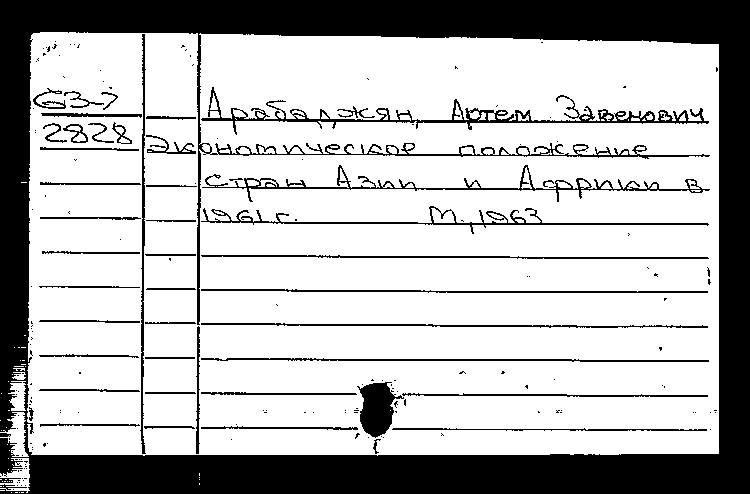 63-7
Арабаджян, Артем Завенович
2828
Экономическое положение
стран Азии и Африки в
1961 г. М., 1963